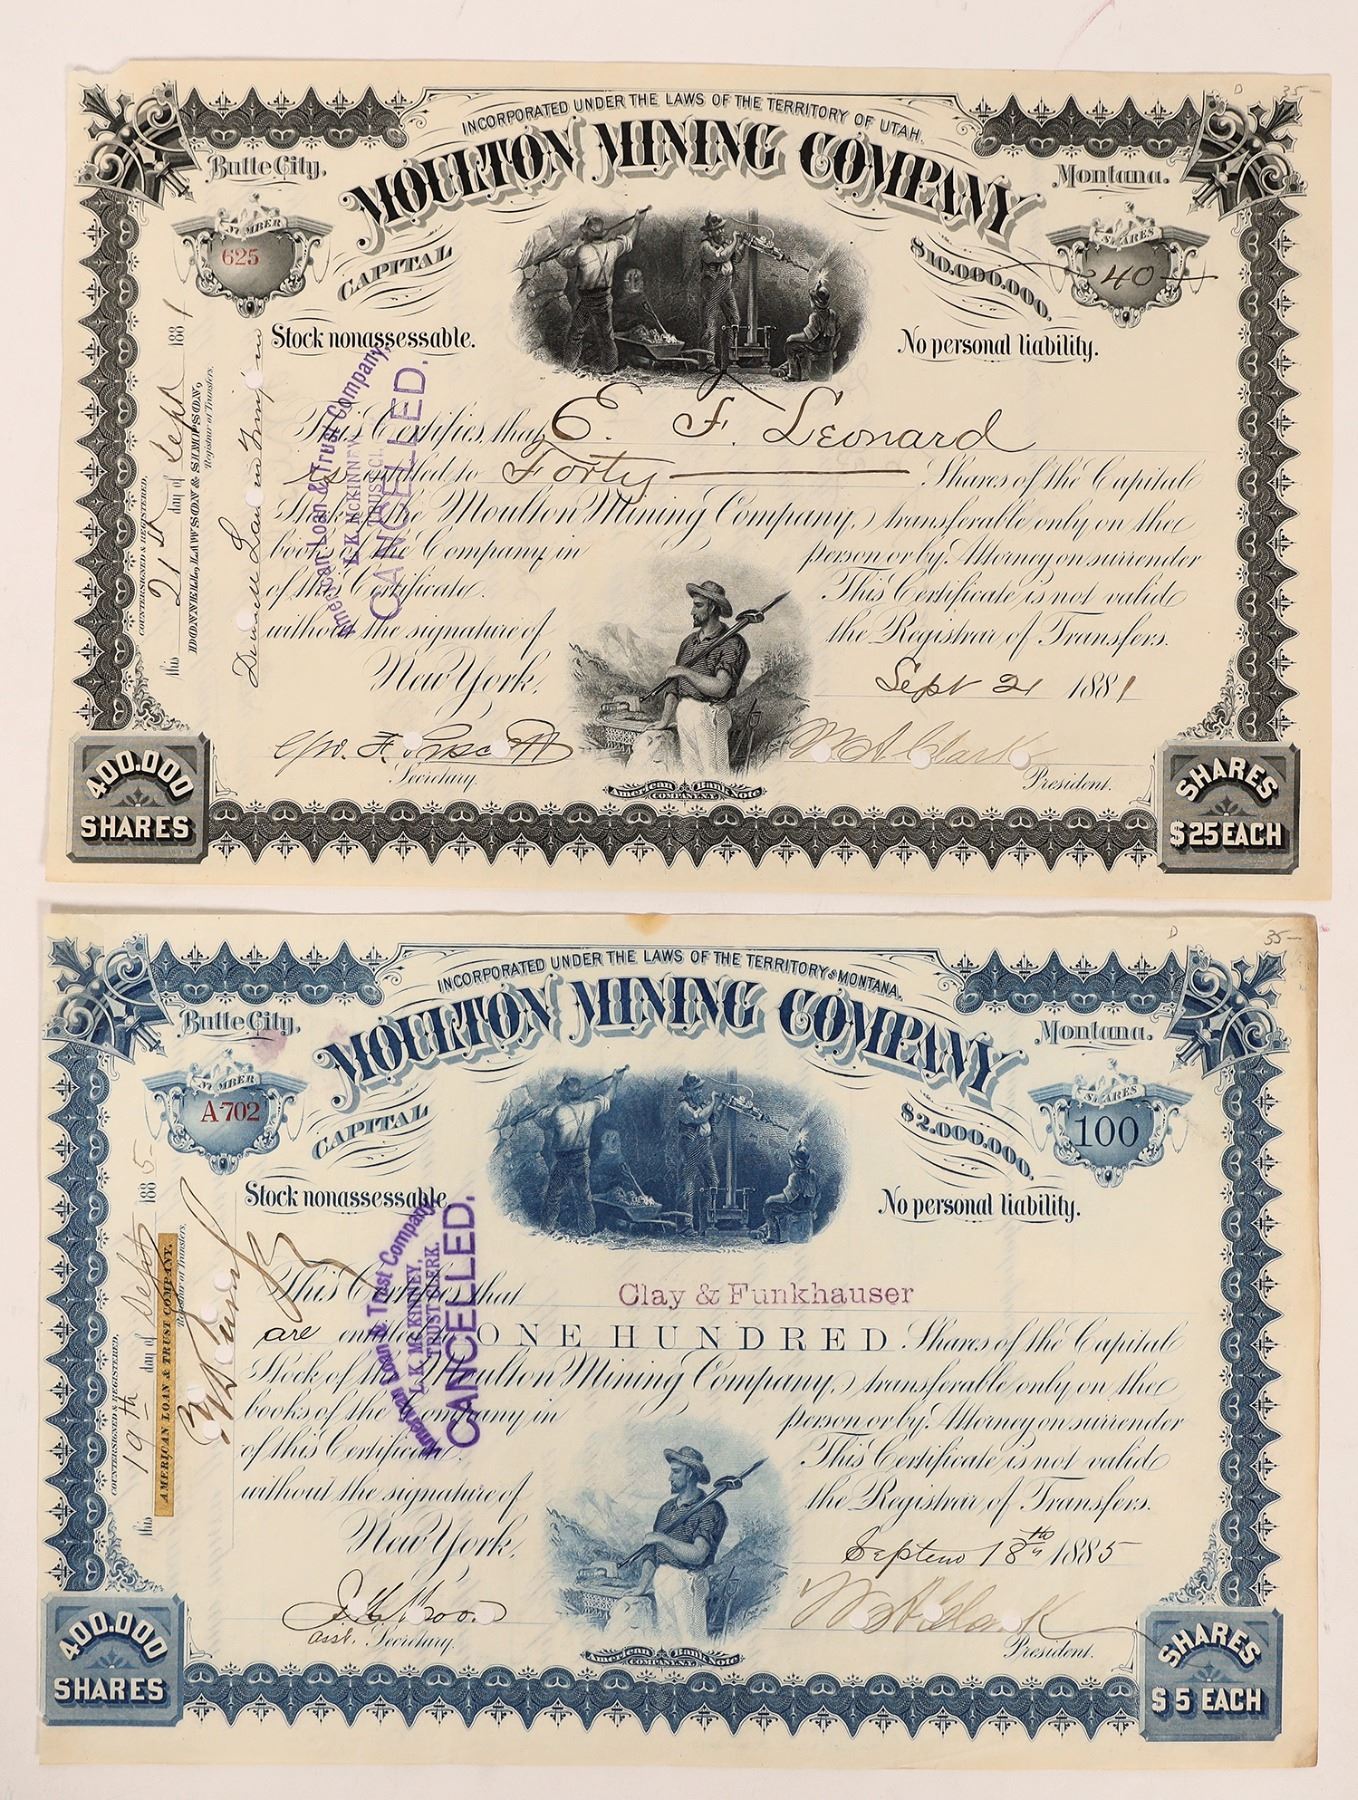 D 35-
INCORPORATED UNDER THE LAWS OF THE TERRITORY OF UTAH.
Butte City, MOULTON MINING COMPANY Montana.
NUMBER
625
CAPITAL $10.000.000.
SHARES
40
Stock nonassessable. No personal liability.
This Certifies that E. F. Leonard
is entitled to Forty Shares of the Capital
Stock of the Moulton Mining Company, transferable only on the
books of the Company in person or by Attorney on surrender
of this Certificate. This Certificate is not valid
without the signature of the Registrar of Transfers.
New York, Sept 21 1881
Secretary. W A Clark President.
American Bank Note
COMPANY N.Y.
400.000
SHARES
SHARES
$25 EACH
COUNTERSIGNED & REGISTERED,
this 21st day of Sept 1881
DONNELL, LAWSON & SIMPSON,
Registrar of Transfers.
American Loan & Trust Company,
L. K. MCKINNEY,
TRUST CL
CANCELLED.
D 35-
INCORPORATED UNDER THE LAWS OF THE TERRITORY OF MONTANA.
Butte City, MOULTON MINING COMPANY Montana.
NUMBER
A702
CAPITAL $2.000.000.
SHARES
100
Stock nonassessable No personal liability.
This Certifies that Clay & Funkhauser
are entitled to ONE HUNDRED Shares of the Capital
Stock of the Moulton Mining Company, transferable only on the
books of the Company in person or by Attorney on surrender
of this Certificate. This Certificate is not valid
without the signature of the Registrar of Transfers.
New York, 18th 1885
asst. Secretary. W A Clark President.
American Bank Note
COMPANY N.Y.
400.000
SHARES
SHARES
$5 EACH
COUNTERSIGNED & REGISTERED,
this 19th day of Sept 1885
AMERICAN LOAN & TRUST COMPANY.
Registrar of Transfers.
American Loan & Trust Company,
L. K. MCKINNEY,
TRUST CLERK.
CANCELLED.